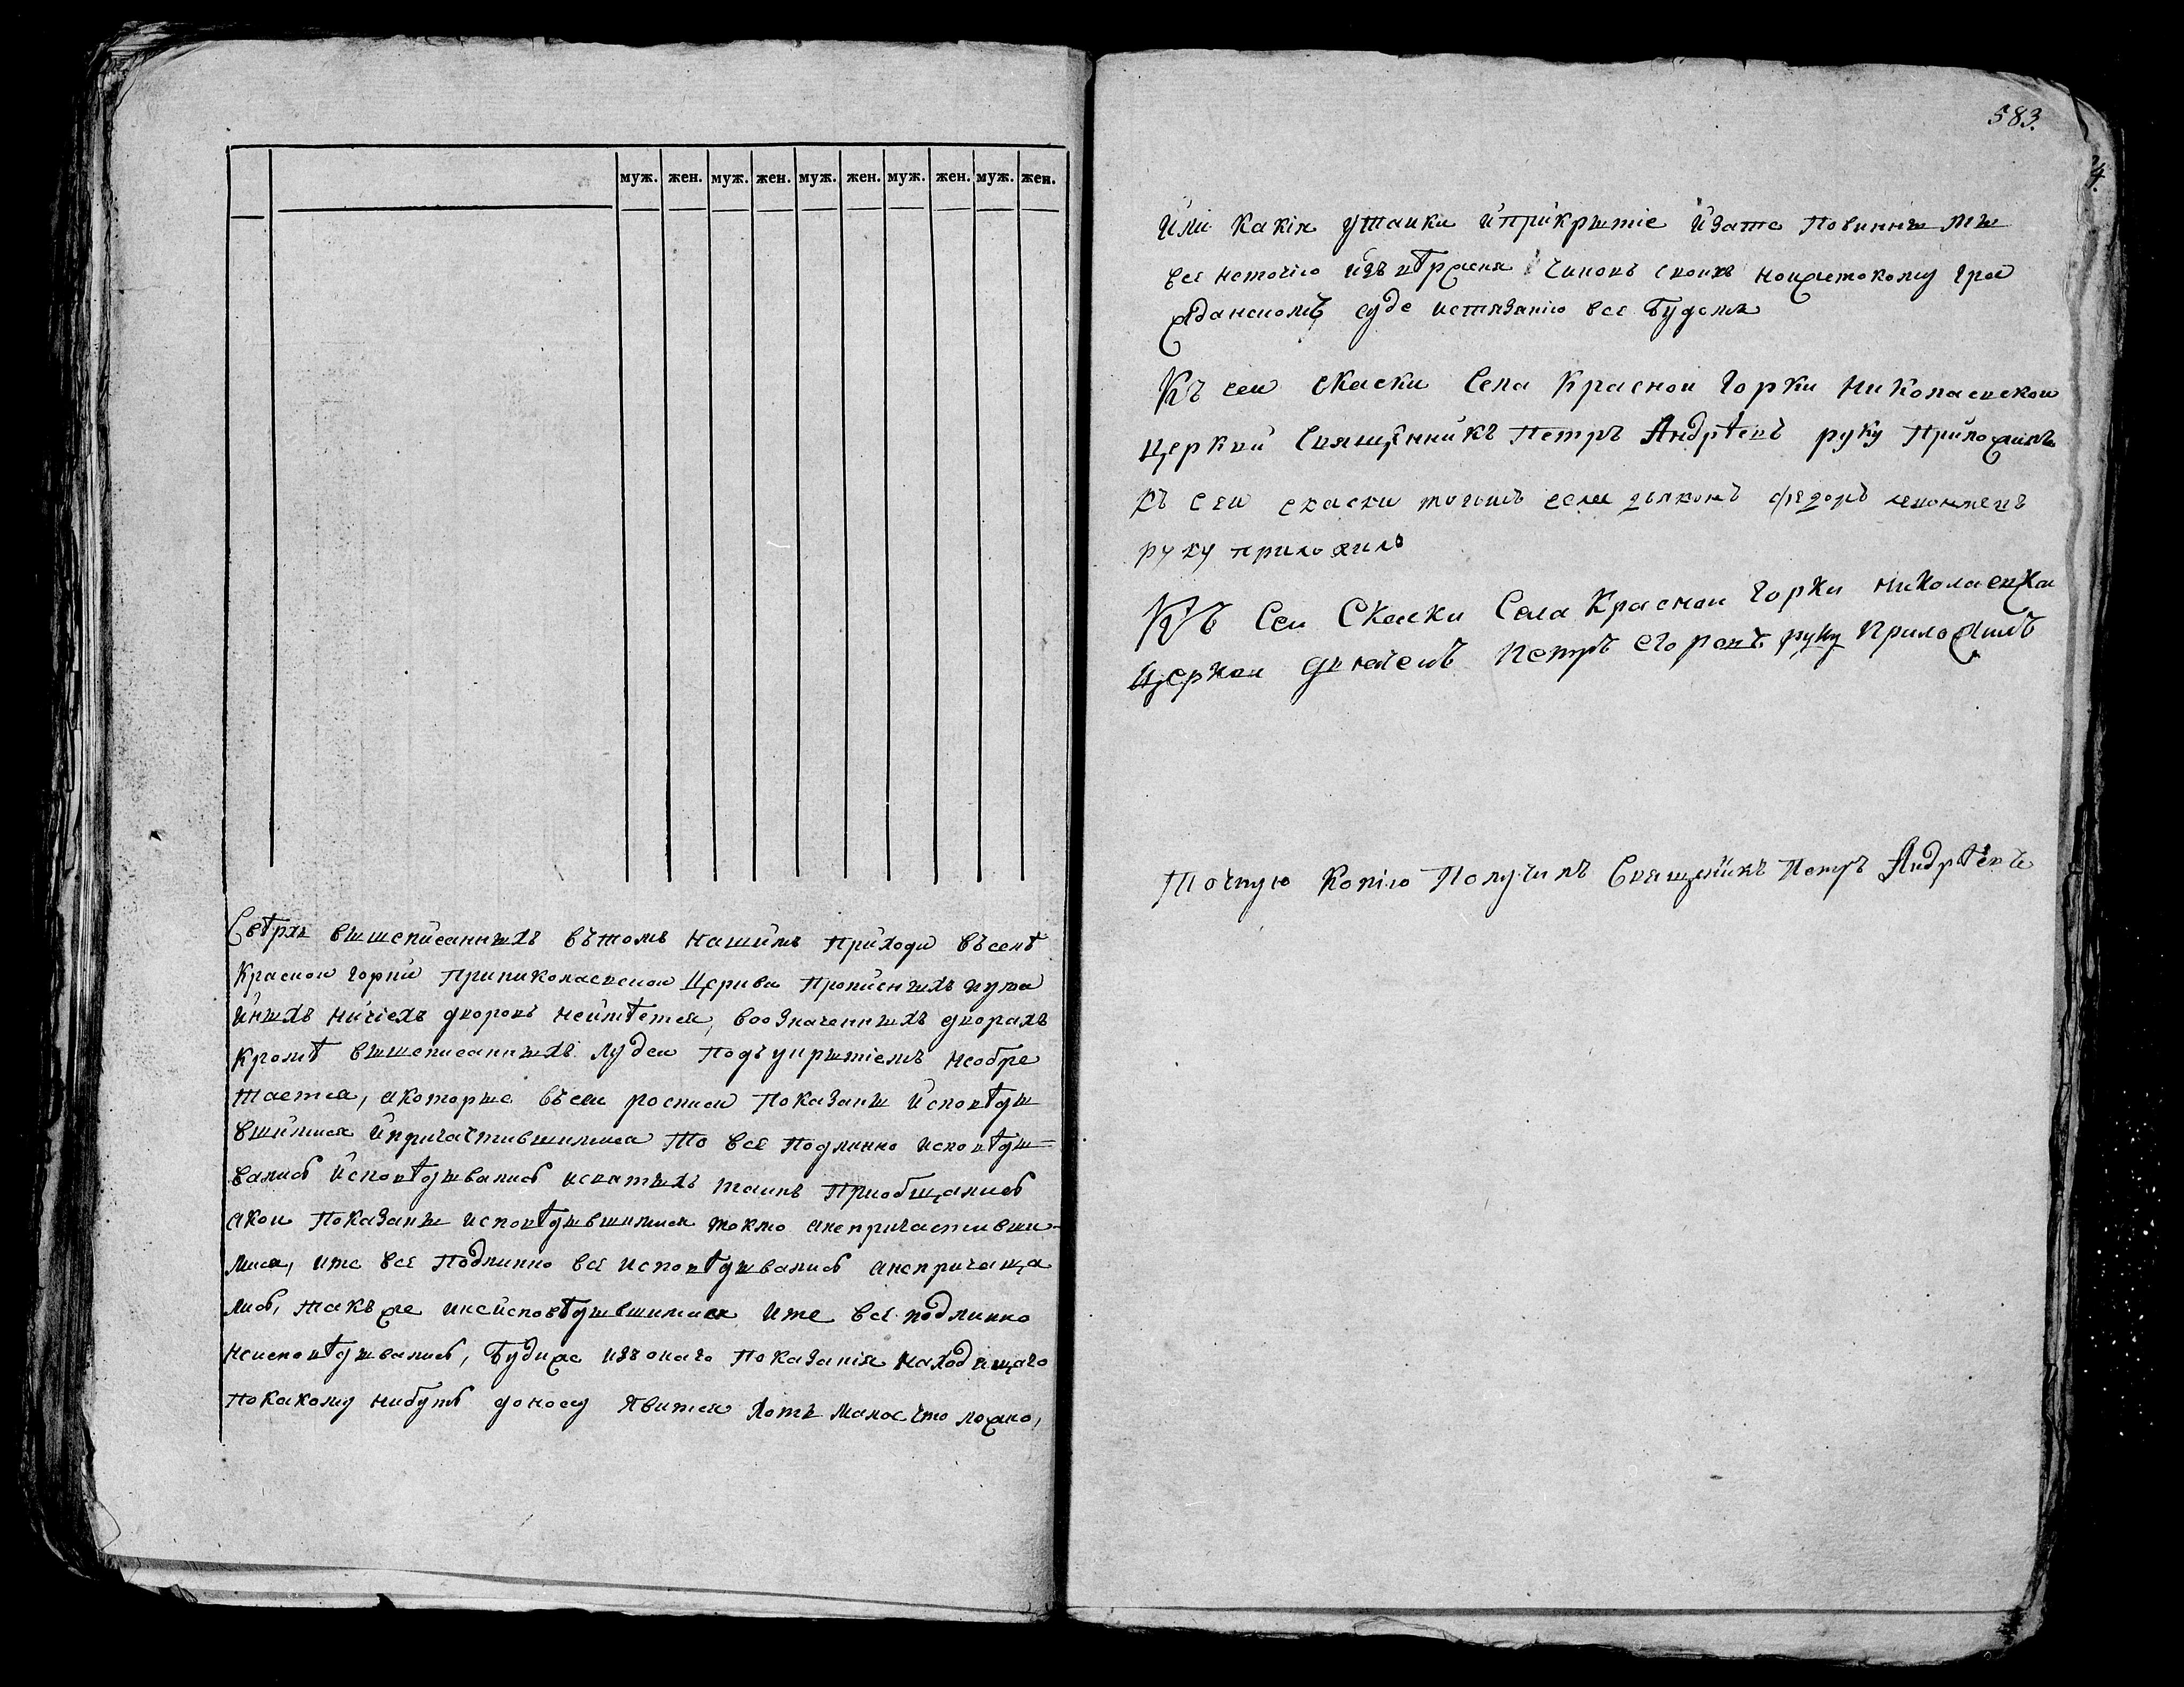 муж. жен. муж. жен. муж. жен. муж. жен. муж. жен.
Свѣрхъ вышеписанныхъ въ томъ нашимъ приходи въ селѣ
Краснои горки при николаевскои церкви прописныхъ нужа
иныхъ ничіехъ дворовъ неимѣется, воозначенныхъ дворахъ
кромѣ вышеписанныхъ людеи подъ укрытіемъ необре
тается, а которые въ сеи росписи показаны исповѣды
вшимися ипричастившимися то все подлинно исповѣды=
вались исповѣдывались исвятыхъ таинъ приобщались
а кои показаны исповѣдывшимися токмо анепричастивши-
мися, ите все подлинно все исповѣдывались анепричаща
лись, такъже инеисповѣдывшимися ите все подлинно
неисповѣдывались, будиже изъ онаго показанія находящаго
по какому нибуть доносу явится хотя малое что ложно,
583.
или какія утаики иприкрытіе изато повинны мы
все неточію изъвѣрженія чиновъ своихъ ноижетокому гра
жданскомъ суде истязанію все будемъ
Къ сеи скаски села Краснои горки николаевскои
церкви священникъ Петръ Андрѣевъ руку приложилъ
къ сеи скаски тогожъ села дьяконъ федоръ
руку приложилъ
Къ сеи скаски села Краснои горки николаевскаи
церкви дьячекъ петръ егоровъ руку приложилъ
Точную копію получилъ Священникъ Петръ Андрѣевъ